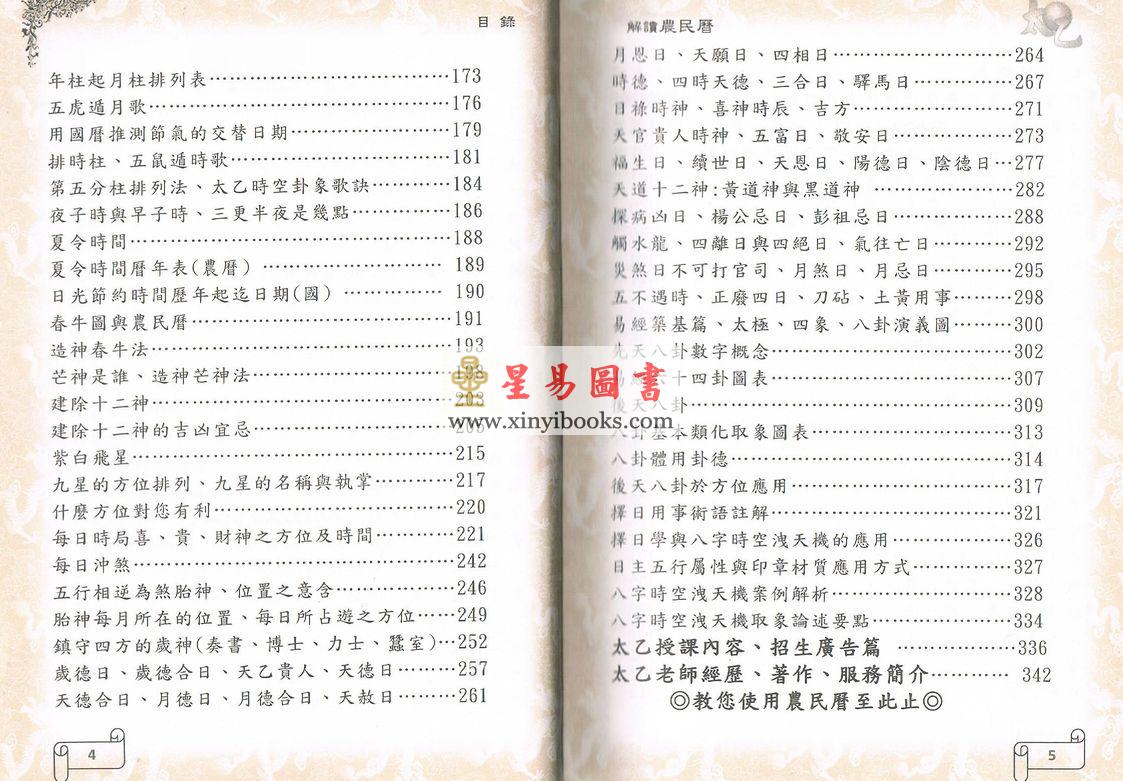 目錄
年柱起月柱排列表……………………………173
五虎遁月歌……………………………………176
用國曆推測節氣的交替日期…………………179
排時柱、五鼠遁時歌…………………………181
第五分柱排列法、太乙時空卦象歌訣………184
夜子時與早子時、三更半夜是幾點…………186
夏令時間………………………………………188
夏令時間曆年表(農曆) …………………… 189
日光節約時間歷年起迄日期(國) ………… 190
春牛圖與農民曆………………………………191
造神春牛法……………………………………193
芒神是誰、造神芒神法………………………198
建除十二神……………………………………203
建除十二神的吉凶宜忌………………………
紫白飛星………………………………………215
九星的方位排列、九星的名稱與執掌………217
什麼方位對您有利……………………………220
每日時局喜、貴、財神之方位及時間………221
每日沖煞………………………………………242
五行相逆為煞胎神、位置之意含……………246
胎神每月所在的位置、每日所占遊之方位…249
鎮守四方的歲神(奏書、博士、力士、蠶室)…252
歲德日、歲德合日、天乙貴人、天德日……257
天德合日、月德日、月德合日、天赦日……261
4
解讀農民曆
太乙
月恩日、天願日、四相日……………………264
時德、四時天德、三合日、驛馬日…………267
日祿時神、喜神時辰、吉方…………………271
天官貴人時神、五富日、敬安日……………273
福生日、續世日、天恩日、陽德日、陰德日…277
天道十二神:黃道神與黑道神 ………………282
探病凶日、楊公忌日、彭祖忌日……………288
觸水龍、四離日與四絕日、氣往亡日………292
災煞日不可打官司、月煞日、月忌日………295
五不遇時、正廢四日、刀砧、土黃用事……298
易經築基篇、太極、四象、八卦演義圖……300
先天八卦數字概念……………………………302
易經六十四卦圖表……………………………307
後天八卦………………………………………309
八卦基本類化取象圖表………………………313
八卦體用卦德…………………………………314
後天八卦於方位應用…………………………317
擇日用事術語註解……………………………321
擇日學與八字時空洩天機的應用……………326
日主五行屬性與印章材質應用方式…………327
八字時空洩天機案例解析……………………328
八字時空洩天機取象論述要點………………334
太乙授課內容、招生廣告篇 ………………336
太乙老師經歷、著作、服務簡介………… 342
◎教您使用農民曆至此止◎
5
星易圖書
www.xinyibooks.com